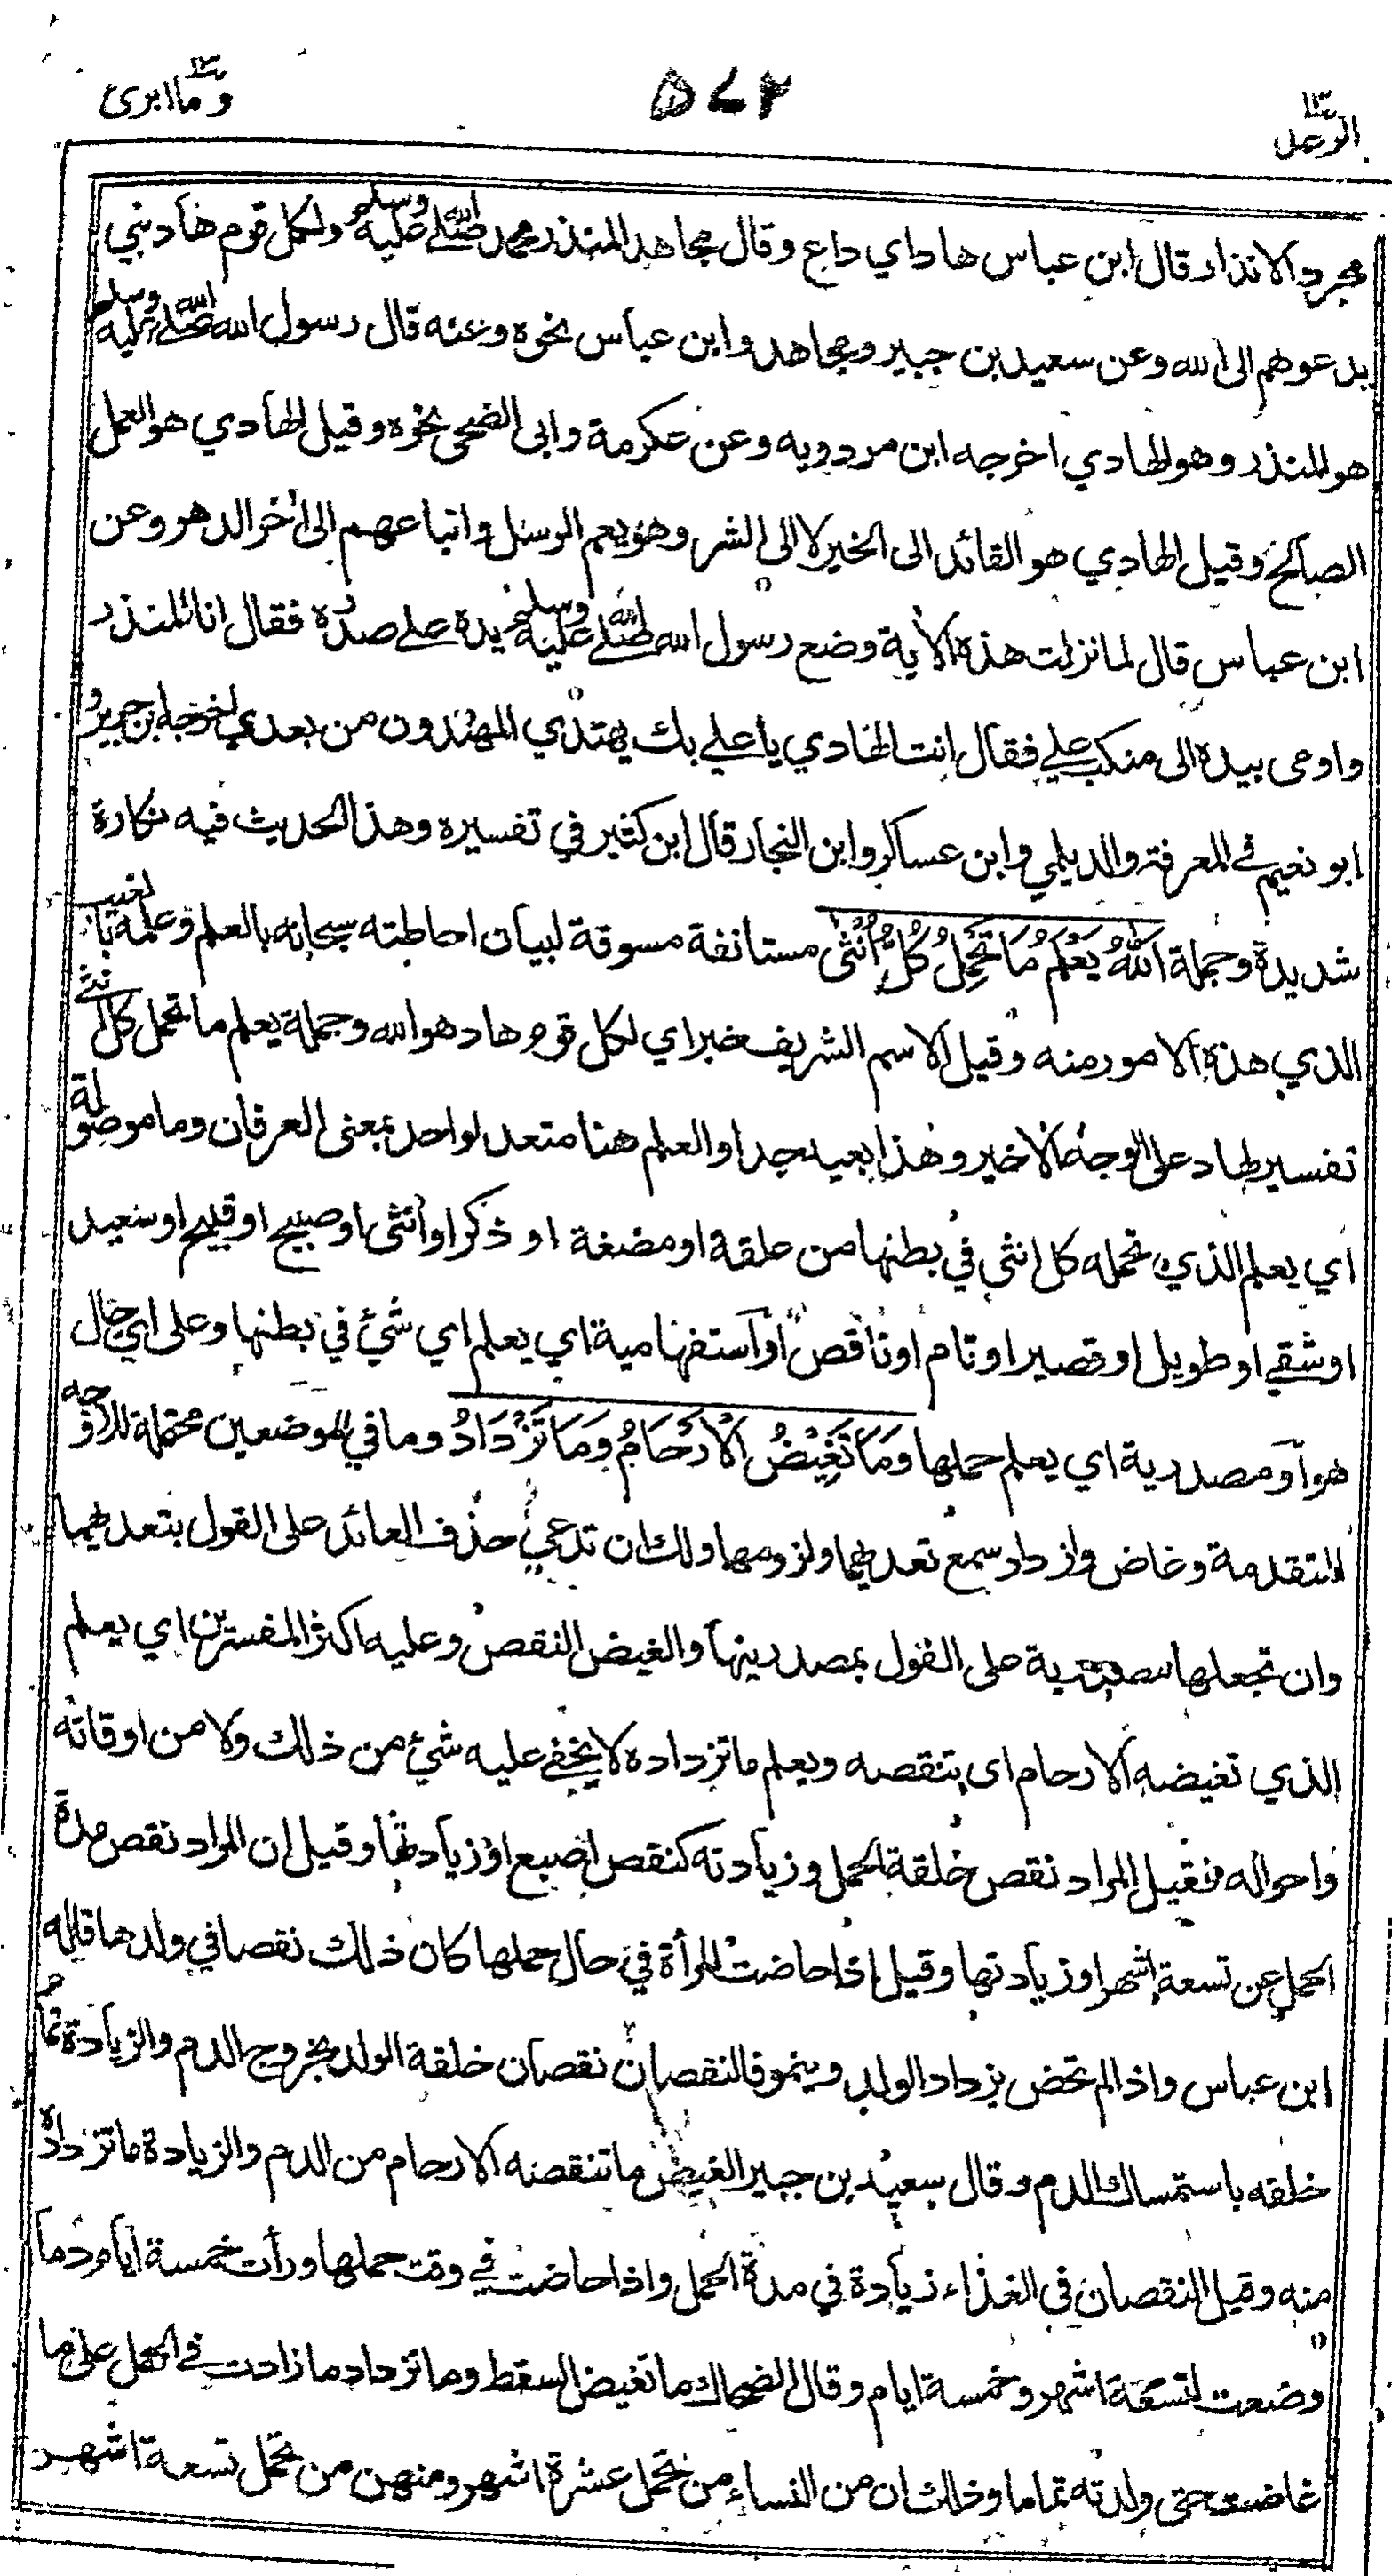 وما ابرئ ١٣
٥٧٢
الرعد ١٣
مجرد الانذار قال ابن عباس هاد اي داع وقال مجاهد المنذر محمد صلى الله عليه وسلم ولكل قوم هاد نبي
يدعوهم الى الله وعن سعيد بن جبير ومجاهد وابن عباس نحوه وعنه قال رسول الله صلى الله عليه وسلم
هو المنذر وهو الهادي اخرجه ابن مردويه وعن عكرمة وابي الضحى نحوه وقيل الهادي هو العمل
الصالح وقيل الهادي هو القائد الى الخير لا الى الشر وهو يعم الرسل واتباعهم الى آخر الدهر وعن
ابن عباس قال لما نزلت هذه الآية وضع رسول الله صلى الله عليه وسلم يده على صدره فقال انا المنذر
واومى بيده الى منكب علي فقال انت الهادي يا علي بك يهتدي المهتدون من بعدي اخرجه ابن جرير و
ابو نعيم في المعرفة والديلمي وابن عساكر وابن النجار قال ابن كثير في تفسيره وهذا الحديث فيه نكارة
شديدة وجملة اَللّٰهُ يَعْلَمُ مَا تَحْمِلُ كُلُّ اُنْثٰى مستانفة مسوقة لبيان احاطته سبحانه بالعلم وعلمه بالغيب
الذي هذه الامور منه وقيل الاسم الشريف خبر اي لكل قوم هاد هو الله وجملة يعلم ما تحمل كل انثى
تفسير لهاد على الوجه الاخير وهذا بعيد جدا والعلم هنا متعد لواحد بمعنى العرفان وما موصولة
اي يعلم الذي تحمله كل انثى في بطنها من علقة او مضغة او ذكر او انثى او صبيح او قبيح او سعيد
او شقي او طويل او قصير او تام او ناقص او استفهامية اي يعلم اي شئ في بطنها وعلى اي حال
هو او مصدرية اي يعلم حملها وَمَا تَغِيْضُ الْاَرْحَامُ وَمَا تَزْدَادُ وما في الموضعين محتملة للاوجه
المتقدمة وغاض وازداد سمع تعديهما ولزومهما ولك ان تدعي حذف العائد على القول بتعديهما
وان تجعلها مصدرية على القول بمصدريتها والغيض النقص وعليه اكثر المفسرين اي يعلم
الذي تغيضه الارحام اى تنقصه ويعلم ما تزداده لا يخفى عليه شئ من ذلك ولا من اوقاته
واحواله فقيل المراد نقص خلقة الحمل وزيادته كنقص اصبع او زيادتها وقيل ان المراد نقص مدة
الحمل عن تسعة اشهر او زيادتها وقيل اذا حاضت المرأة في حال حملها كان ذلك نقصا في ولدها قاله
ابن عباس واذا لم تحض يزداد الولد وينمو فالنقصان نقصان خلقة الولد بخروج الدم والزيادة تمام
خلقه باستمساك الدم وقال سعيد بن جبير الغيض ما تنقصه الارحام من الدم والزيادة ما تزداد
منه وقيل النقصان في الغذاء زيادة في مدة الحمل واذا حاضت في وقت حملها ورأت خمسة ايام دما
وضعت لتسعة اشهر وخمسة ايام وقال الضحاك ما تغيض السقط وما تزداد ما زادت في الحمل على ما
غاضت حتى ولدته تماما وذلك ان من النساء من تحمل عشرة اشهر ومنهن من تحمل تسعة اشهر